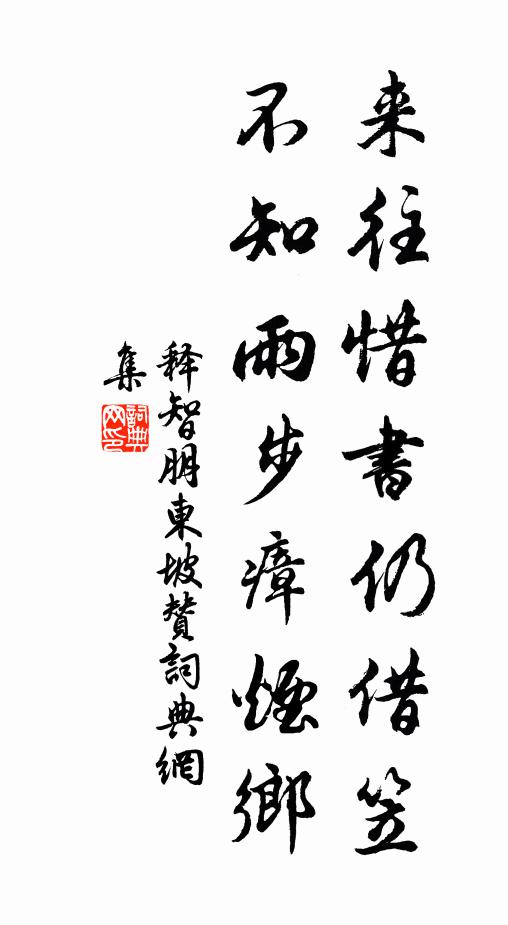 来往惜書仍借笠
不知雨步瘴煙鄉
释智朋東坡赞詞典網
集
詞典网印